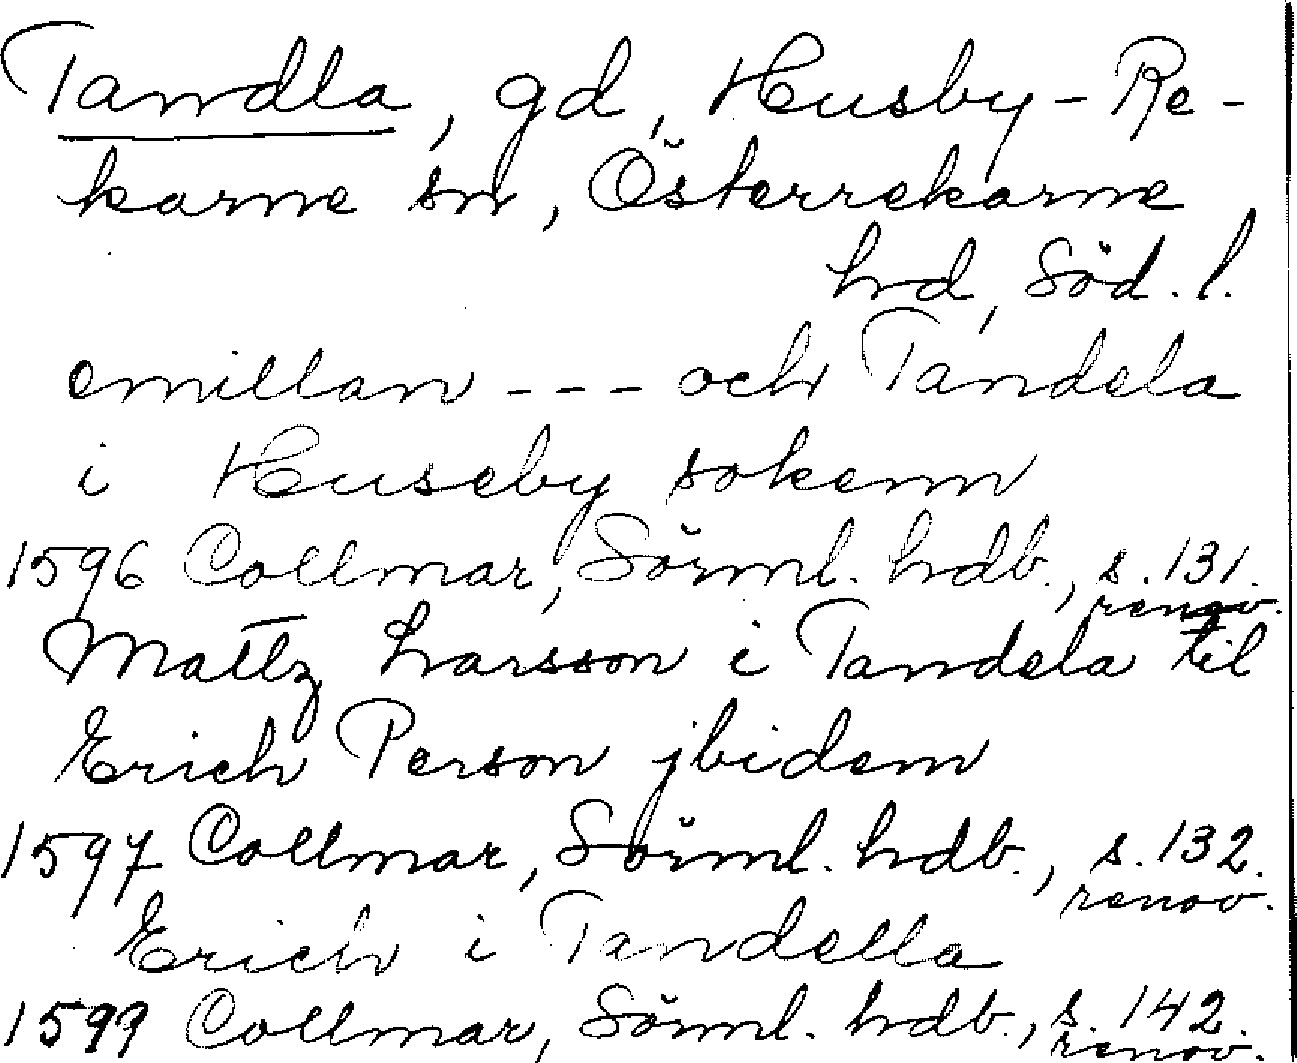 Tandla, gd, Husby-Re-
karne sn, Österrekarne
hd, Söd. l.
emillan --- och Tandela
i Huseby sokenn
1596 Collmar, Sörml. hdb., s. 131.
renov.
Mattz Larsson i Tandela til
Erich Person jbidem
1597 Collmar, Sörml. hdb., s. 132.
renov.
Erich i Tandella
1599 Collmar, Sörml. hdb., s. 142.
renov.